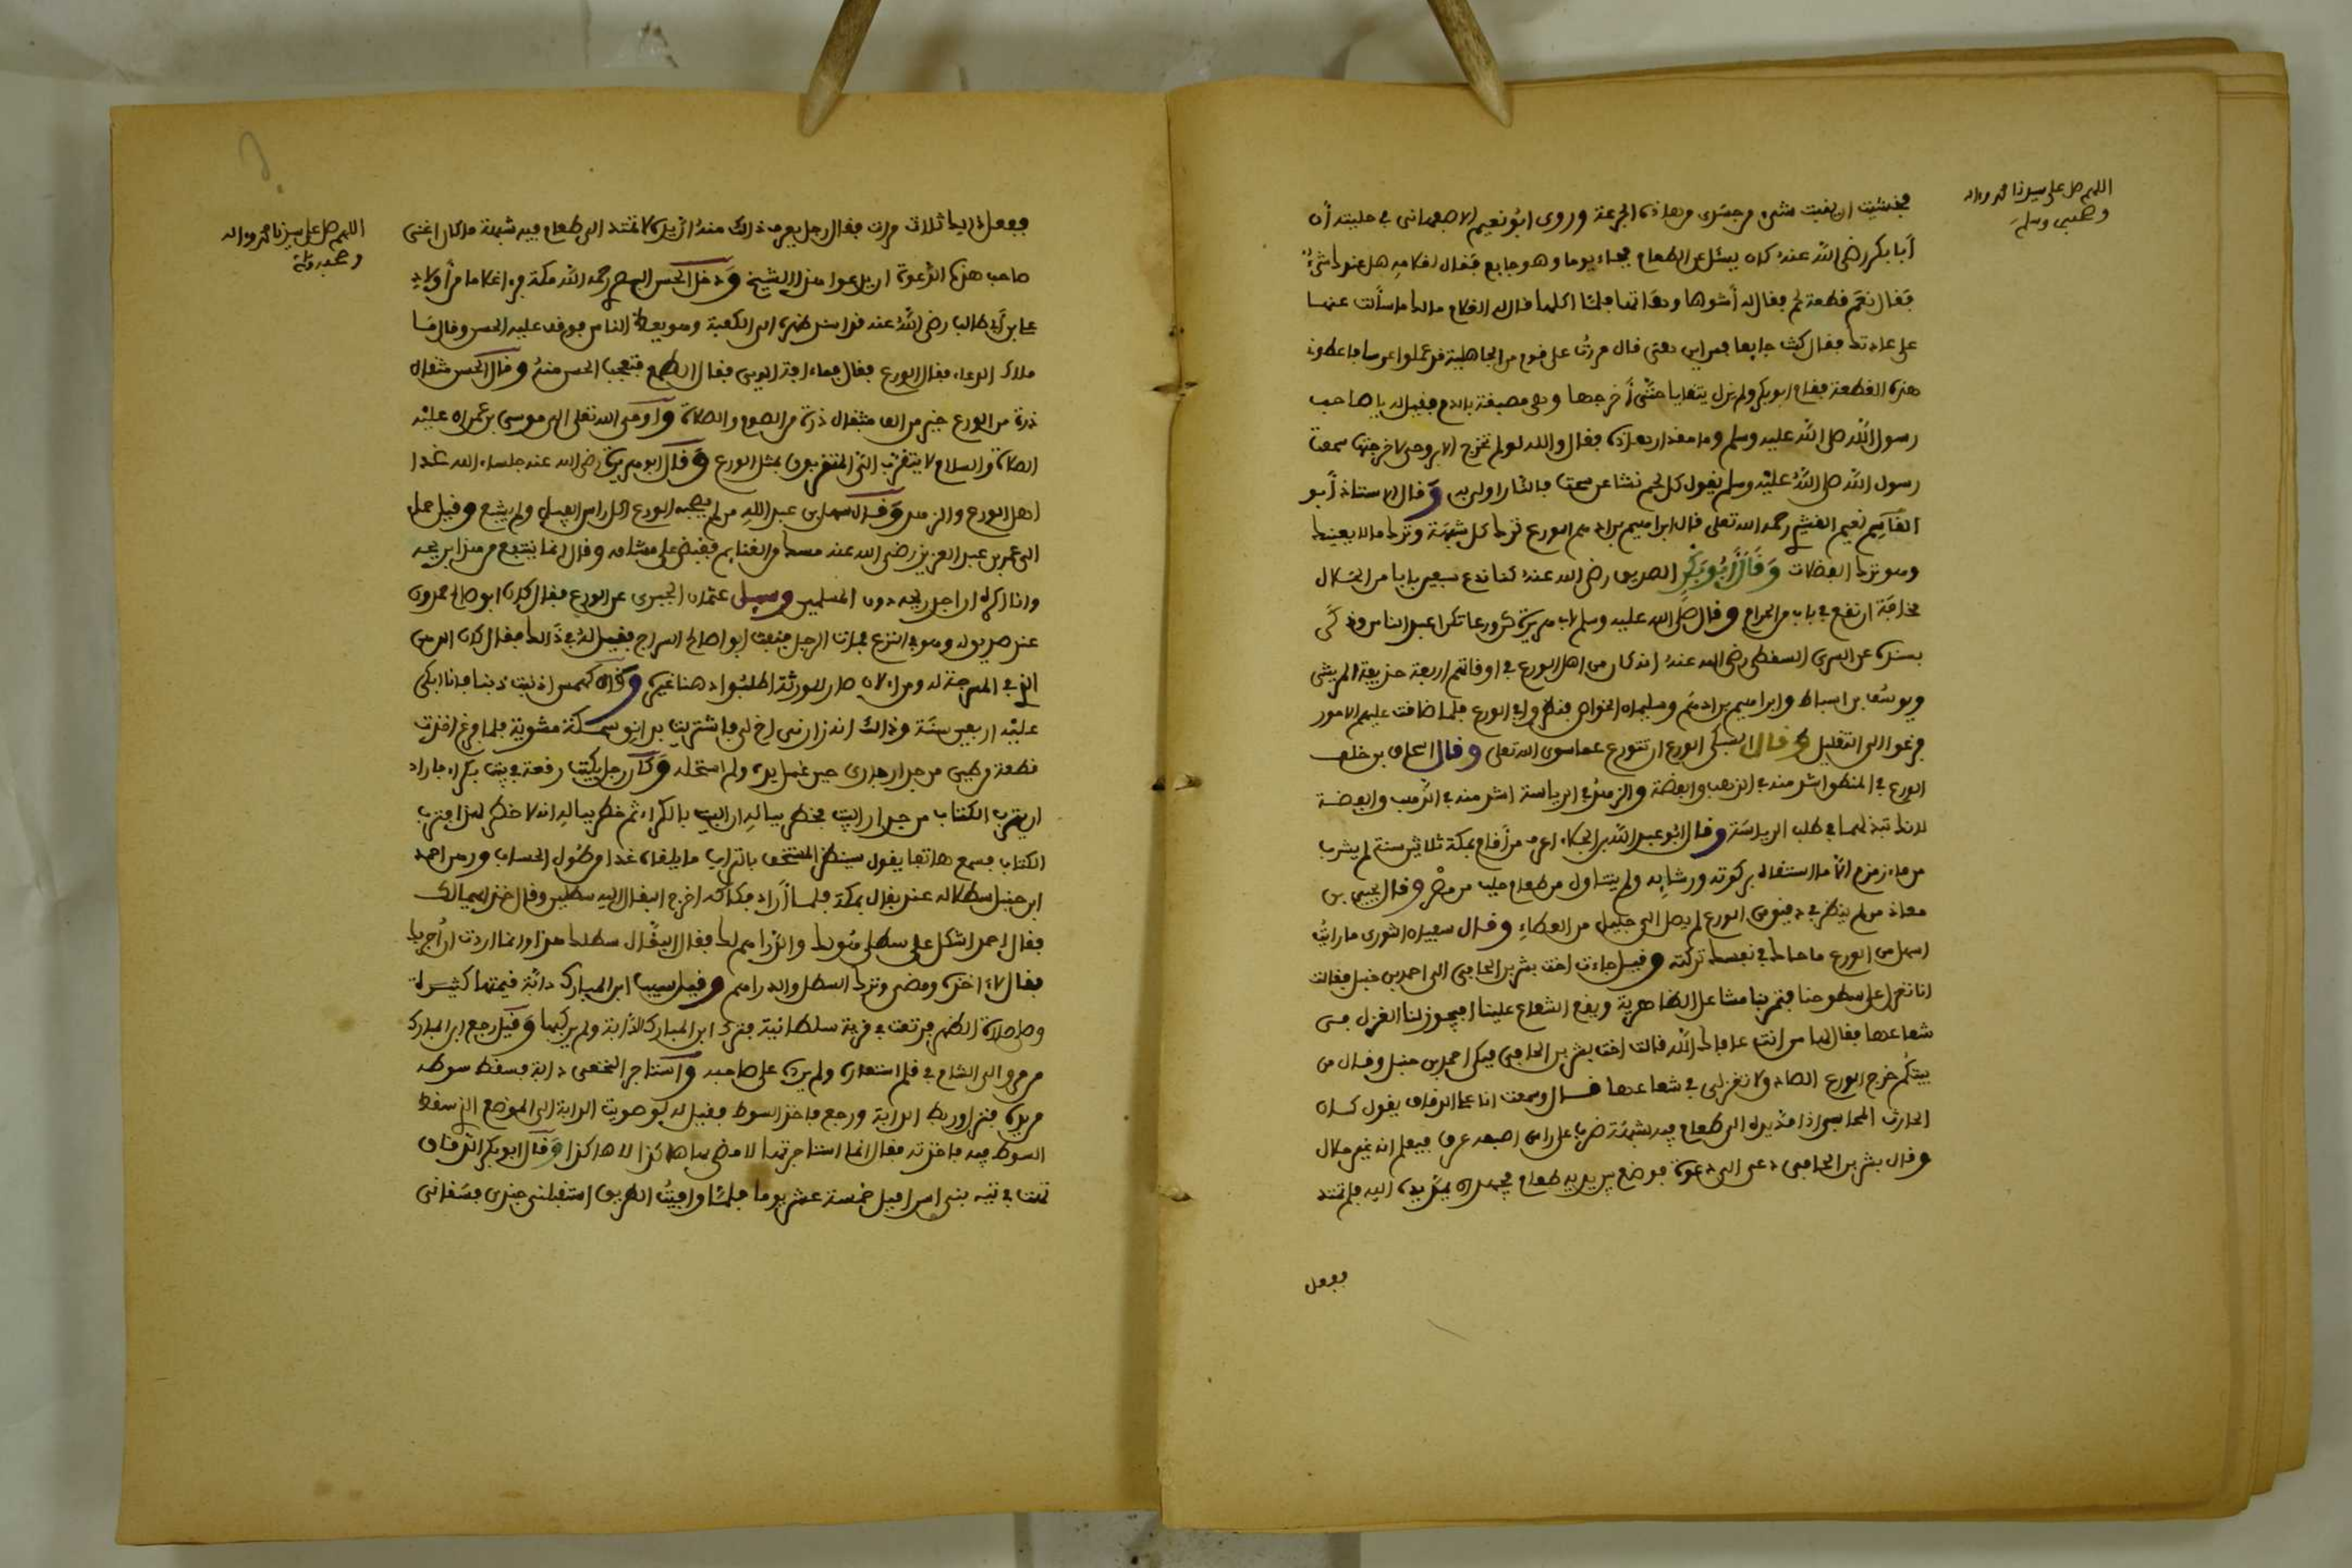 اللهم صل على سيدنا محمد وءاله
وصحبه وسلم
فخشيت ان ينبت شيء من جسدى من هاذه الجرعة وروى ابو نعيم الاصبهانى في حليته أن
أبا بكر رضى الله عنه كان يسئل عن الطعام فجاء يوما وهو جايع فقال لغلامه هل عندك شيء
فقال نعم قطعة لحم فقال له أشوها وهاتها فلما اكلها قال له الغلام مالك ما سألت عنها
على عادتك فقال كنت جايعا فمن اين هى قال مررت على قوم من الجاهلية قد عملوا عرسا فاعطونى
هذه القطعة فقام ابو بكر ولم يزل يتقايا حتى أخرجها وهى مصبغة بالدم فقيل له يا صاحب
رسول الله صلى الله عليه وسلم وما مقدار هاذه فقال والله لو لم تخرج الا بروحى لاخرجتها سمعت
رسول الله صلى الله عليه وسلم يقول كل لحم نشا عن سحت فالنار اولى به وقال الاستاذ أبو
القاسم القشيري رحمه الله تعلى قال ابراهيم بن ادهم الورع ترك كل شبهة وترك مالا يعنيك
وهو ترك الفضلات وقال أبو بكر الصديق رضى الله عنه كنا ندع سبعين بابا من الحلال
مخافة ان نقع في باب من الحرام وقال صلى الله عليه وسلم لابى هريرة كن ورعا تكن اعبد الناس وذكر
بسنده عن السرى السقطى رضى الله عنه انه كان من اهل الورع في اوقاتهم اربعة حذيفة المرعشى
ويوسف بن اسباط وابراهيم بن ادهم وسليمان الخواص فنظروا في الورع فلما ضاقت عليهم الامور
فزعوا الى التقليل وقال الشبلى الورع ان تتورع عما سوى الله تعلى وقال اسحاق بن خلف
الورع في المنطق اشد منه في الذهب والفضة والزهد في الرياسة اشد منه في الذهب والفضة
لانك تبذلهما في طلب الرياسة وقال ابو عبد الله بن الجلاء اعرف من أقام بمكة ثلاثين سنة لم يشرب
من ماء زمزم الا ما استقاه بركوته ورشايه ولم يتناول من طعام جلب من مصر وقال يحيى بن
معاذ من لم ينظر في دقيق من الورع لم يصل الى جليل من العطاء وقال سفيان الثورى ما رايت
اسهل من الورع ما حاك في نفسك تركته وقيل جاءت اخت بشر بن الحافى الى احمد بن حنبل فقالت
انا نغزل على سطوحنا فتمر بنا مشاعل الظاهرية ويقع الشعاع علينا افيجوز لنا الغزل في
شعاعها فقال لها من انت عافاك الله قالت اخت بشر بن الحافى فبكى احمد بن حنبل وقال من
بيتكم خرج الورع الصادق لا تغزلى في شعاعها قال وسمعت ابا على الدقاق يقول كان
الحارث المحاسبى اذا مد يده الى طعام فيه شبهة ضرب على راس اصبعه عرق فيعلم انه غير حلال
وقال بشر بن الحافى دعى الى دعوة فوضع بين يديه طعام فجهد ان يمد يده اليه فلم تمتد
ففعل
اللهم صل على سيدنا محمد وءاله
وصحبه وسلم
ففعل ذاليك ثلاث مرات فقال رجل يعرف ذلك منه ان يده لا تمتد الى طعام فيه شبهة ما كان اغنى
صاحب هذه الدعوة ان يدعوا هذا الشيخ ودخل الحسن البصرى رحمه الله مكة فرءا غلاما من أولاد
على بن أبي طالب رضى الله عنه قد اسند ظهره الى الكعبة وهو يعظ الناس فوقف عليه الحسن وقال ما
ملاك الدين فقال الورع فقال فما ءافة الدين فقال الطمع فتعجب الحسن منه وقال الحسن مثقال
ذرة من الورع خير من الف مثقال ذرة من الصوم والصلاة واوحى الله تعلى الى موسى بن عمران عليه
الصلاة والسلام لا يتقرب الي المتقربون بمثل الورع وقال ابو هريرة رضى الله عنه جلساء الله غدا
اهل الورع والزهد وقال سهل بن عبد الله من لم يصحبه الورع اكل راس الفيل ولم يشبع وقيل حمل
الى عمر بن عبد العزيز رضى الله عنه مسك من الغنايم فقبض على مشامه وقال انما ينتفع من هذا بريحه
وانا اكره ان اجد ريحه دون المسلمين وسيل عثمان الحيرى عن الورع فقال كان ابو صالح حمدون
عند صديق له وهو في النزع فمات الرجل فنفث ابو صالح السراج فقيل له في ذالك فقال كان الدهن
الذى في المسرجة له ومن الان صار للورثة اطلبوا دهنا غيره وقال كهمس اذنبت ذنبا فانا ابكى
عليه اربعين سنة وذالك انه زارنى اخ لى فاشتريت بدانق سمكة مشوية فلما فرغ اخذت
قطعة من طين من جدار جارى حين غسل يده ولم استحله وكان رجل يكتب رقعة في بيت بكراء فاراد
ان يترب الكتاب من جدار البيت فخطر بباله ان البيت بالكراء ثم خطر بباله انه لا خطر لهذا فترب
الكتاب فسمع هاتفا يقول سينظر المستخف بالتراب ما يلقاه غدا من طول الحساب ورهن احمد
ابن حنبل سطلا له عند بقال بمكة فلما أراد فكاكه اخرج البقال اليه سطلين وقال خذ ايهما لك
فقال احمد اشكل على سطلى فهو لك والدراهم لك فقال البقال سطلك هذا وانما اردت ان أجربك
فقال لا ءاخذه ومضى وترك السطل والدراهم وقيل سيب ابن المبارك دابة قيمتها كثيرة
وصلى صلاة الظهر فرتعت في قرية سلطانية فترك ابن المبارك الدابة ولم يركبها وقيل رجع ابن المبارك
من مرو الى الشام في قلم استعاره ولم يرده على صاحبه واستاجر النخعى دابة فسقط سوطه
من يده فنزل وربط الدابة ورجع فاخذ السوط فقيل له لو صويت الدابة الى الموضع الذى سقط
السوط فيه فاخذته فقال انما استاجرتها لامضى بها هاكذا لا هاكذا وقال ابو بكر الدقاق
تهت في تيه بنى اسراءيل خمسة عشر يوما فلما وافيت الطريق استقبلنى جندى فسقانى